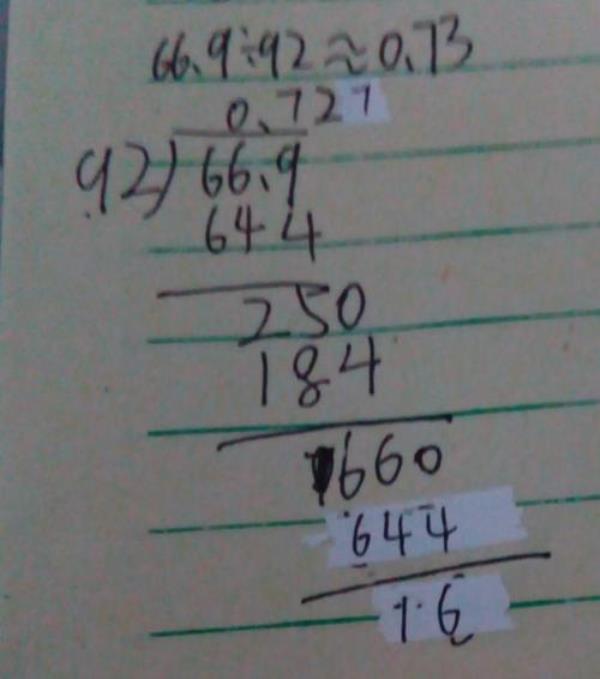 66.9÷92≈0.73
0.727
92)66.9
644
250
184
660
644
16